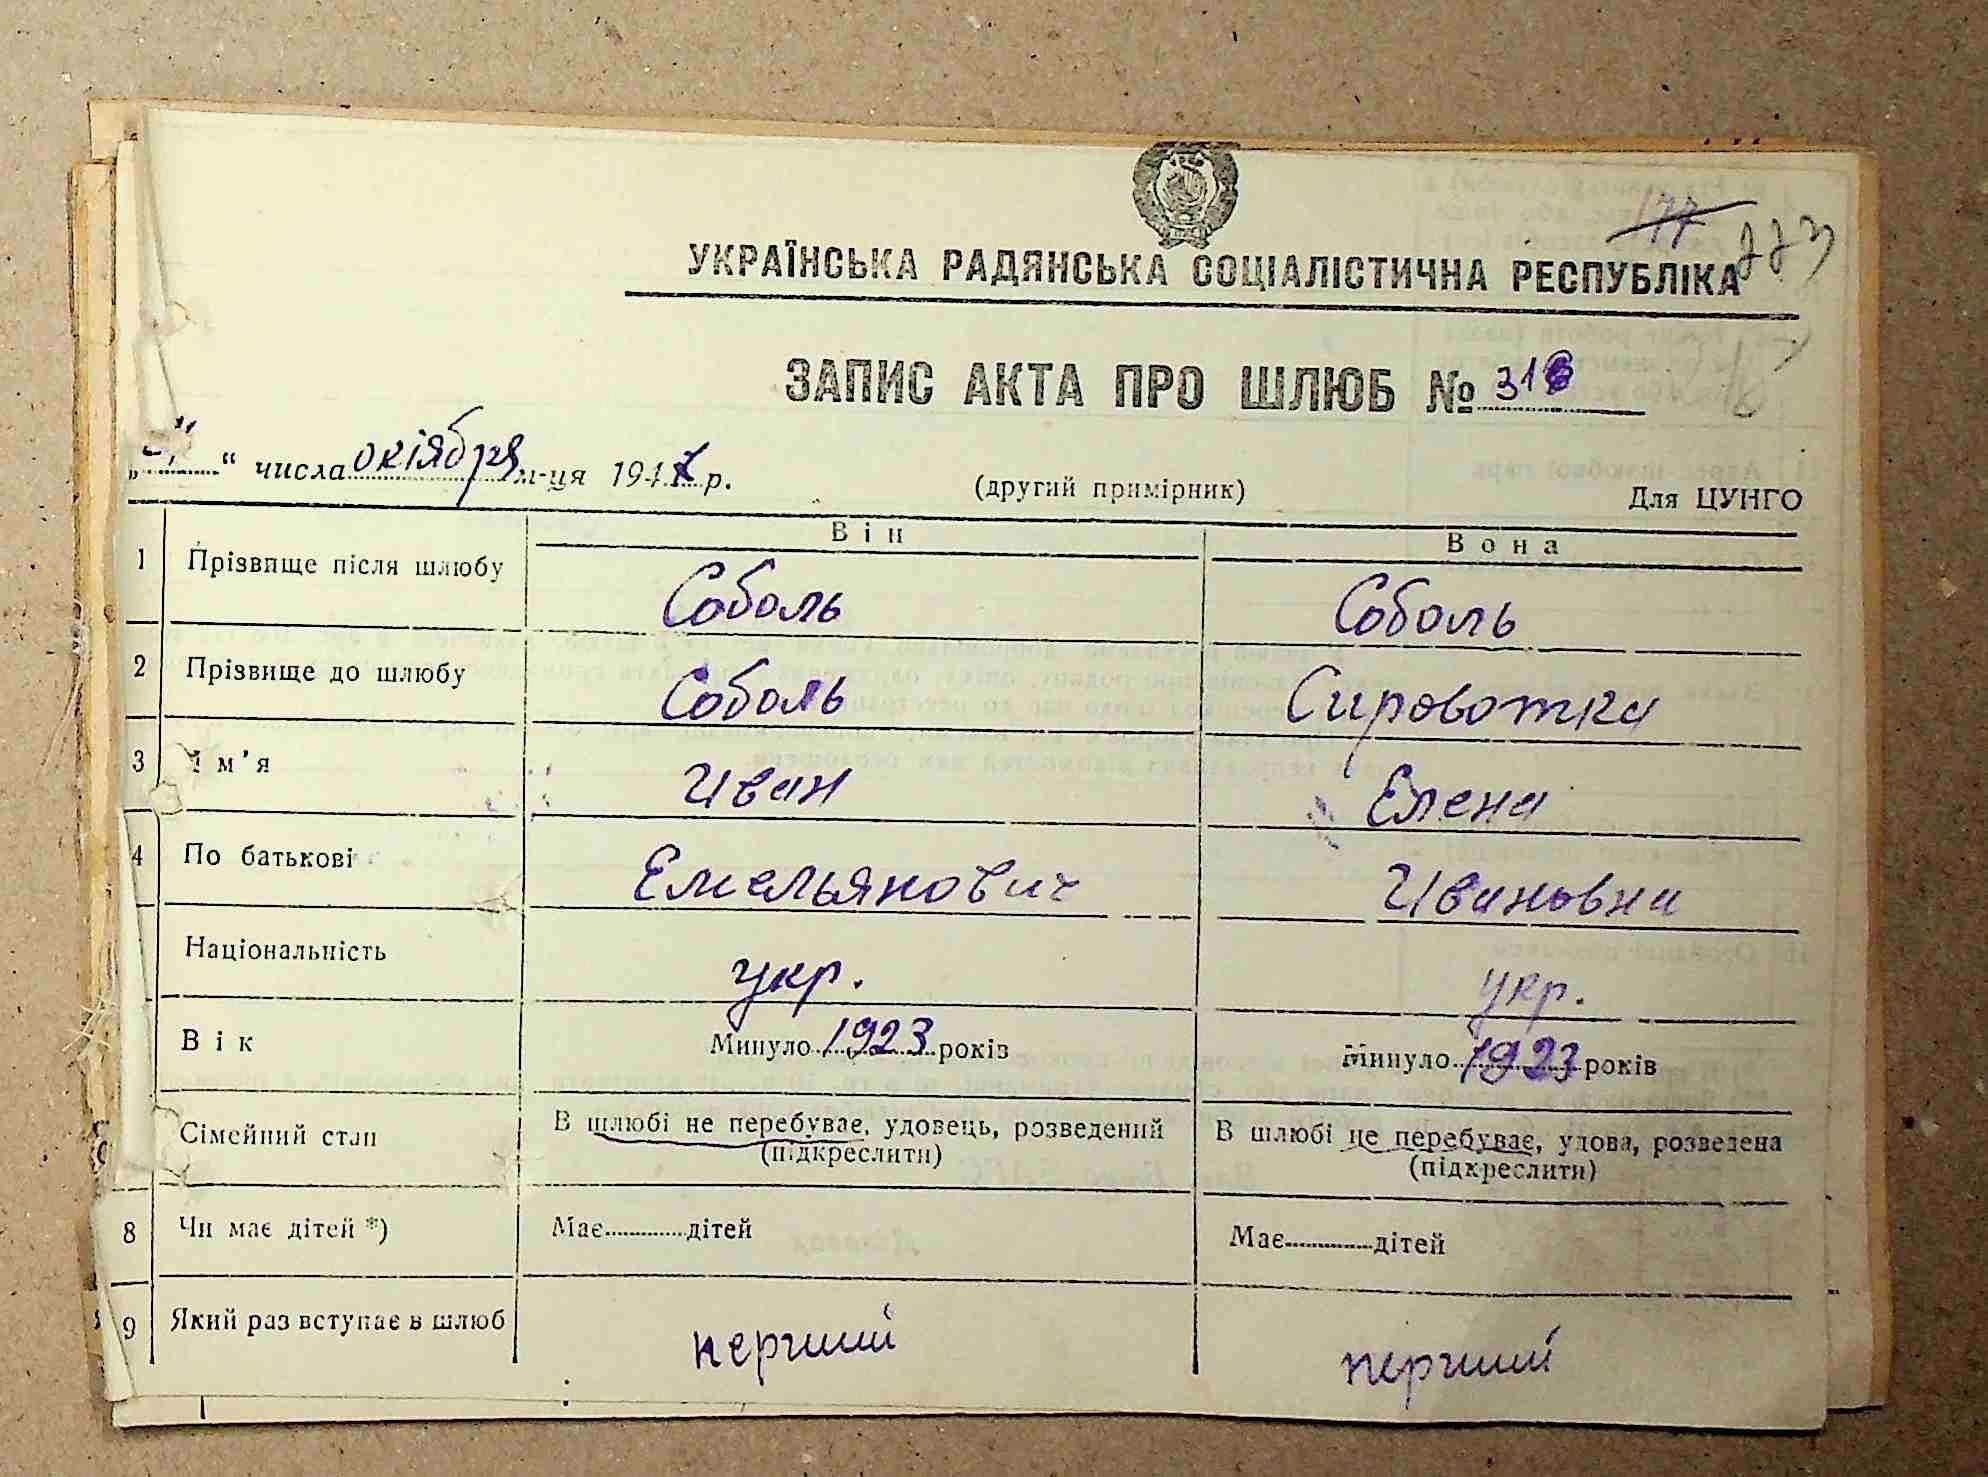 177
223
УКРАЇНСЬКА РАДЯНСЬКА СОЦІАЛІСТИЧНА РЕСПУБЛІКА
ЗАПИС АКТА ПРО ШЛЮБ № 316
„ “ числа октября м-ця 1947 р. (другий примірник) Для ЦУНГО
Він Вона
1 Прізвище після шлюбу Соболь Соболь
2 Прізвище до шлюбу Соболь Сыровотка
3 Ім'я Иван Елена
4 По батькові Емельянович Ивановна
Національність укр. укр.
Вік Минуло 1923 років Минуло 1923 років
Сімейний стан В шлюбі не перебуває, удовець, розведений В шлюбі не перебуває, удова, розведена
(підкреслити) (підкреслити)
8 Чи має дітей *) Має дітей Має дітей
9 Який раз вступає в шлюб перший перший